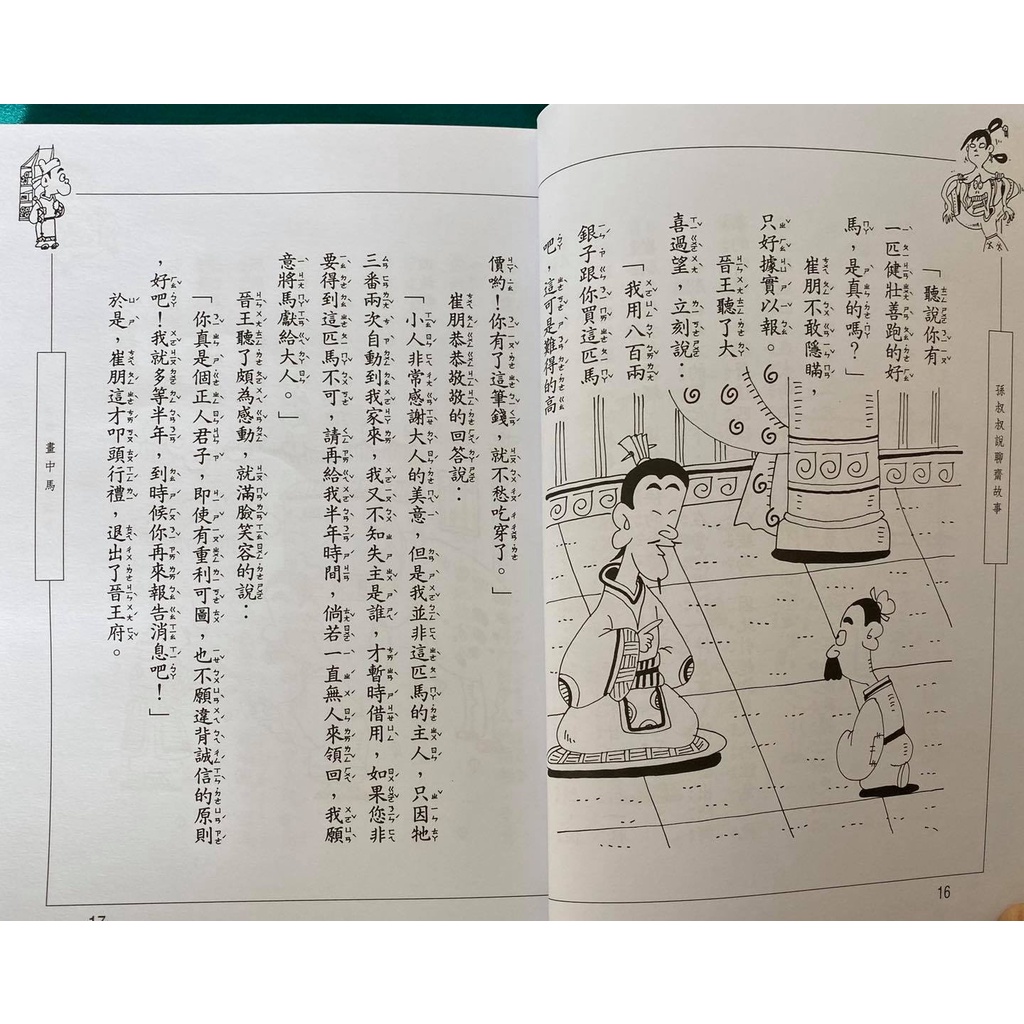 孫叔叔說聊齋故事
「聽說你有
一匹健壯善跑的好
馬，是真的嗎？」
崔朋不敢隱瞞，
只好據實以報。
晉王聽了大
喜過望，立刻說：
「我用八百兩
銀子跟你買這匹馬
吧，這可是難得的高
16
價喲！你有了這筆錢，就不愁吃穿了。」
崔朋恭恭敬敬的回答說：
「小人非常感謝大人的美意，但是我並非這匹馬的主人，只因牠
三番兩次自動到我家來，我又不知失主是誰，才暫時借用，如果您非
要得到這匹馬不可，請再給我半年時間，倘若一直無人來領回，我願
意將馬獻給大人。」
晉王聽了頗為感動，就滿臉笑容的說：
「你真是個正人君子，即使有重利可圖，也不願違背誠信的原則
，好吧！我就多等半年，到時候你再來報告消息吧！」
於是，崔朋這才叩頭行禮，退出了晉王府。
畫中馬
17